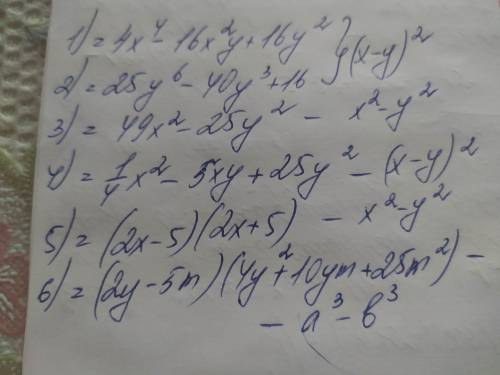 1) = 4x⁴ - 16x²y + 16y² } (x-y)²
2) = 25y⁶ - 40y³ + 16
3) = 49x² - 25y² - x² - y²
4) = 1/4 x² - 5xy + 25y² - (x-y)²
5) = (2x-5)(2x+5) - x² - y²
6) = (2y-5m)(4y²+10ym+25m²) -
- a³ - b³